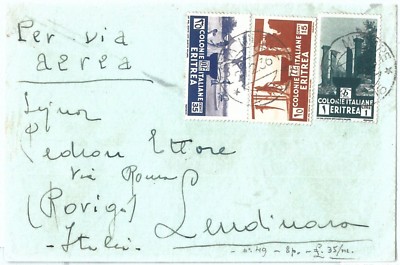 Per via
aerea
COLONIE ITALIANE
ERITREA
35
COLONIE ITALIANE
ERITREA
15
COLONIE ITALIANE
1 ERITREA 1
Signor
Pedron Ettore
Via Roma
(Rovigo)
Lendinara
- Italia -